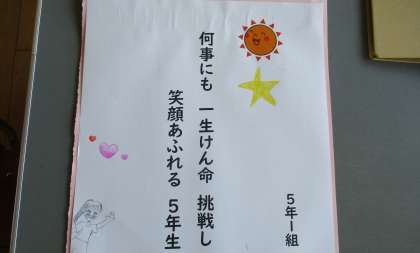 5年1組
何事にも 一生けん命 挑戦し
笑顔あふれる 5年生